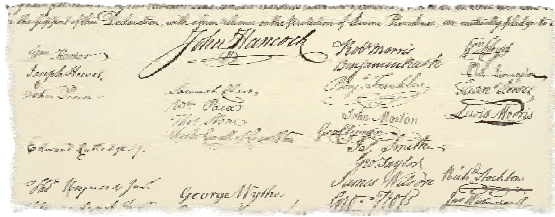 the support of this Declaration, with a firm reliance on the Protection of divine Providence, we mutually pledge to
John Hancock
Wm Hooper
Joseph Hewes,
John Penn
Edward Rutledge
Samuel Chase
Wm Paca
Thos Stone
Charles Carroll of Carrollton
George Wythe
Robt Morris
Benjamin Rush
Benj Franklin
John Morton
Geo Clymer
Jas Smith
Geo Taylor
James Wilson
Geo Ross
Wm Floyd
Phil Livingston
Lewis Morris
Richd Stockton